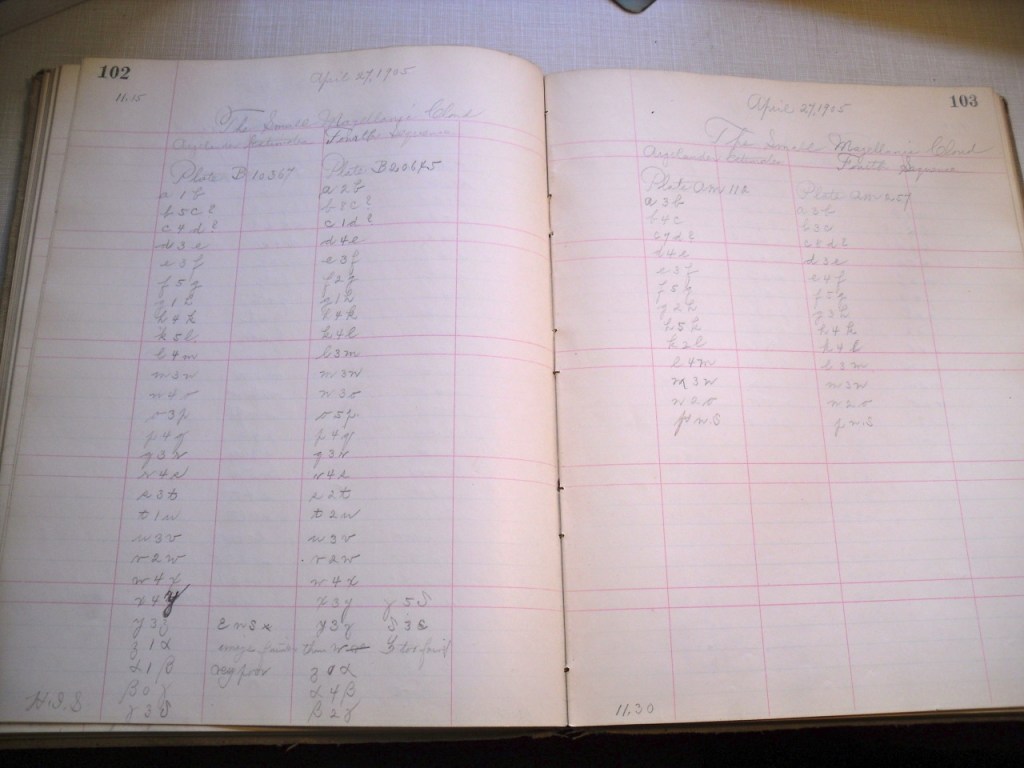 102
April 27, 1905
11.15
The Small Magellanic Cloud
Argelander Estimates Fourth Sequence
Plate B 10367 Plate B 20675
a 1 b a 2 b
b 5 c ? b 3 c ?
c 4 d ? c 1 d ?
d 3 e d 4 e
e 3 f e 3 f
f 5 g f 2 g
g 1 h g 1 h
h 4 k h 4 k
k 5 l k 4 l
l 4 m l 3 m
m 3 n m 3 n
n 4 o n 3 o
o 3 p o 5 p
p 4 q p 4 q
q 3 r q 3 r
r 4 s r 4 s
s 3 t s 2 t
t 1 u t 2 u
u 3 v u 3 v
v 2 w v 2 w
w 4 x w 4 x
x 4 y x 3 y γ 5 δ
y 3 z ε n.s. y 3 z δ 3 ε
z 1 α than
α 1 β very poor z 1 α
β 0 γ α 4 β
H.S.S. γ 3 δ β 2 γ
April 27, 1905 103
The Small Magellanic Cloud
Argelander Estimates Fourth Sequence
Plate AM 112 Plate AM 257
a 3 b a 3 b
b 4 c b 3 c
c 4 d ? c 2 d ?
d 4 e d 3 e
e 3 f e 4 f
f 5 g f 5 g
g 2 h g 3 h
h 5 k h 4 k
k 2 l k 4 l
l 4 m l 3 m
m 3 n m 3 n
n 2 o n 2 o
p n.s p n.s
11.30